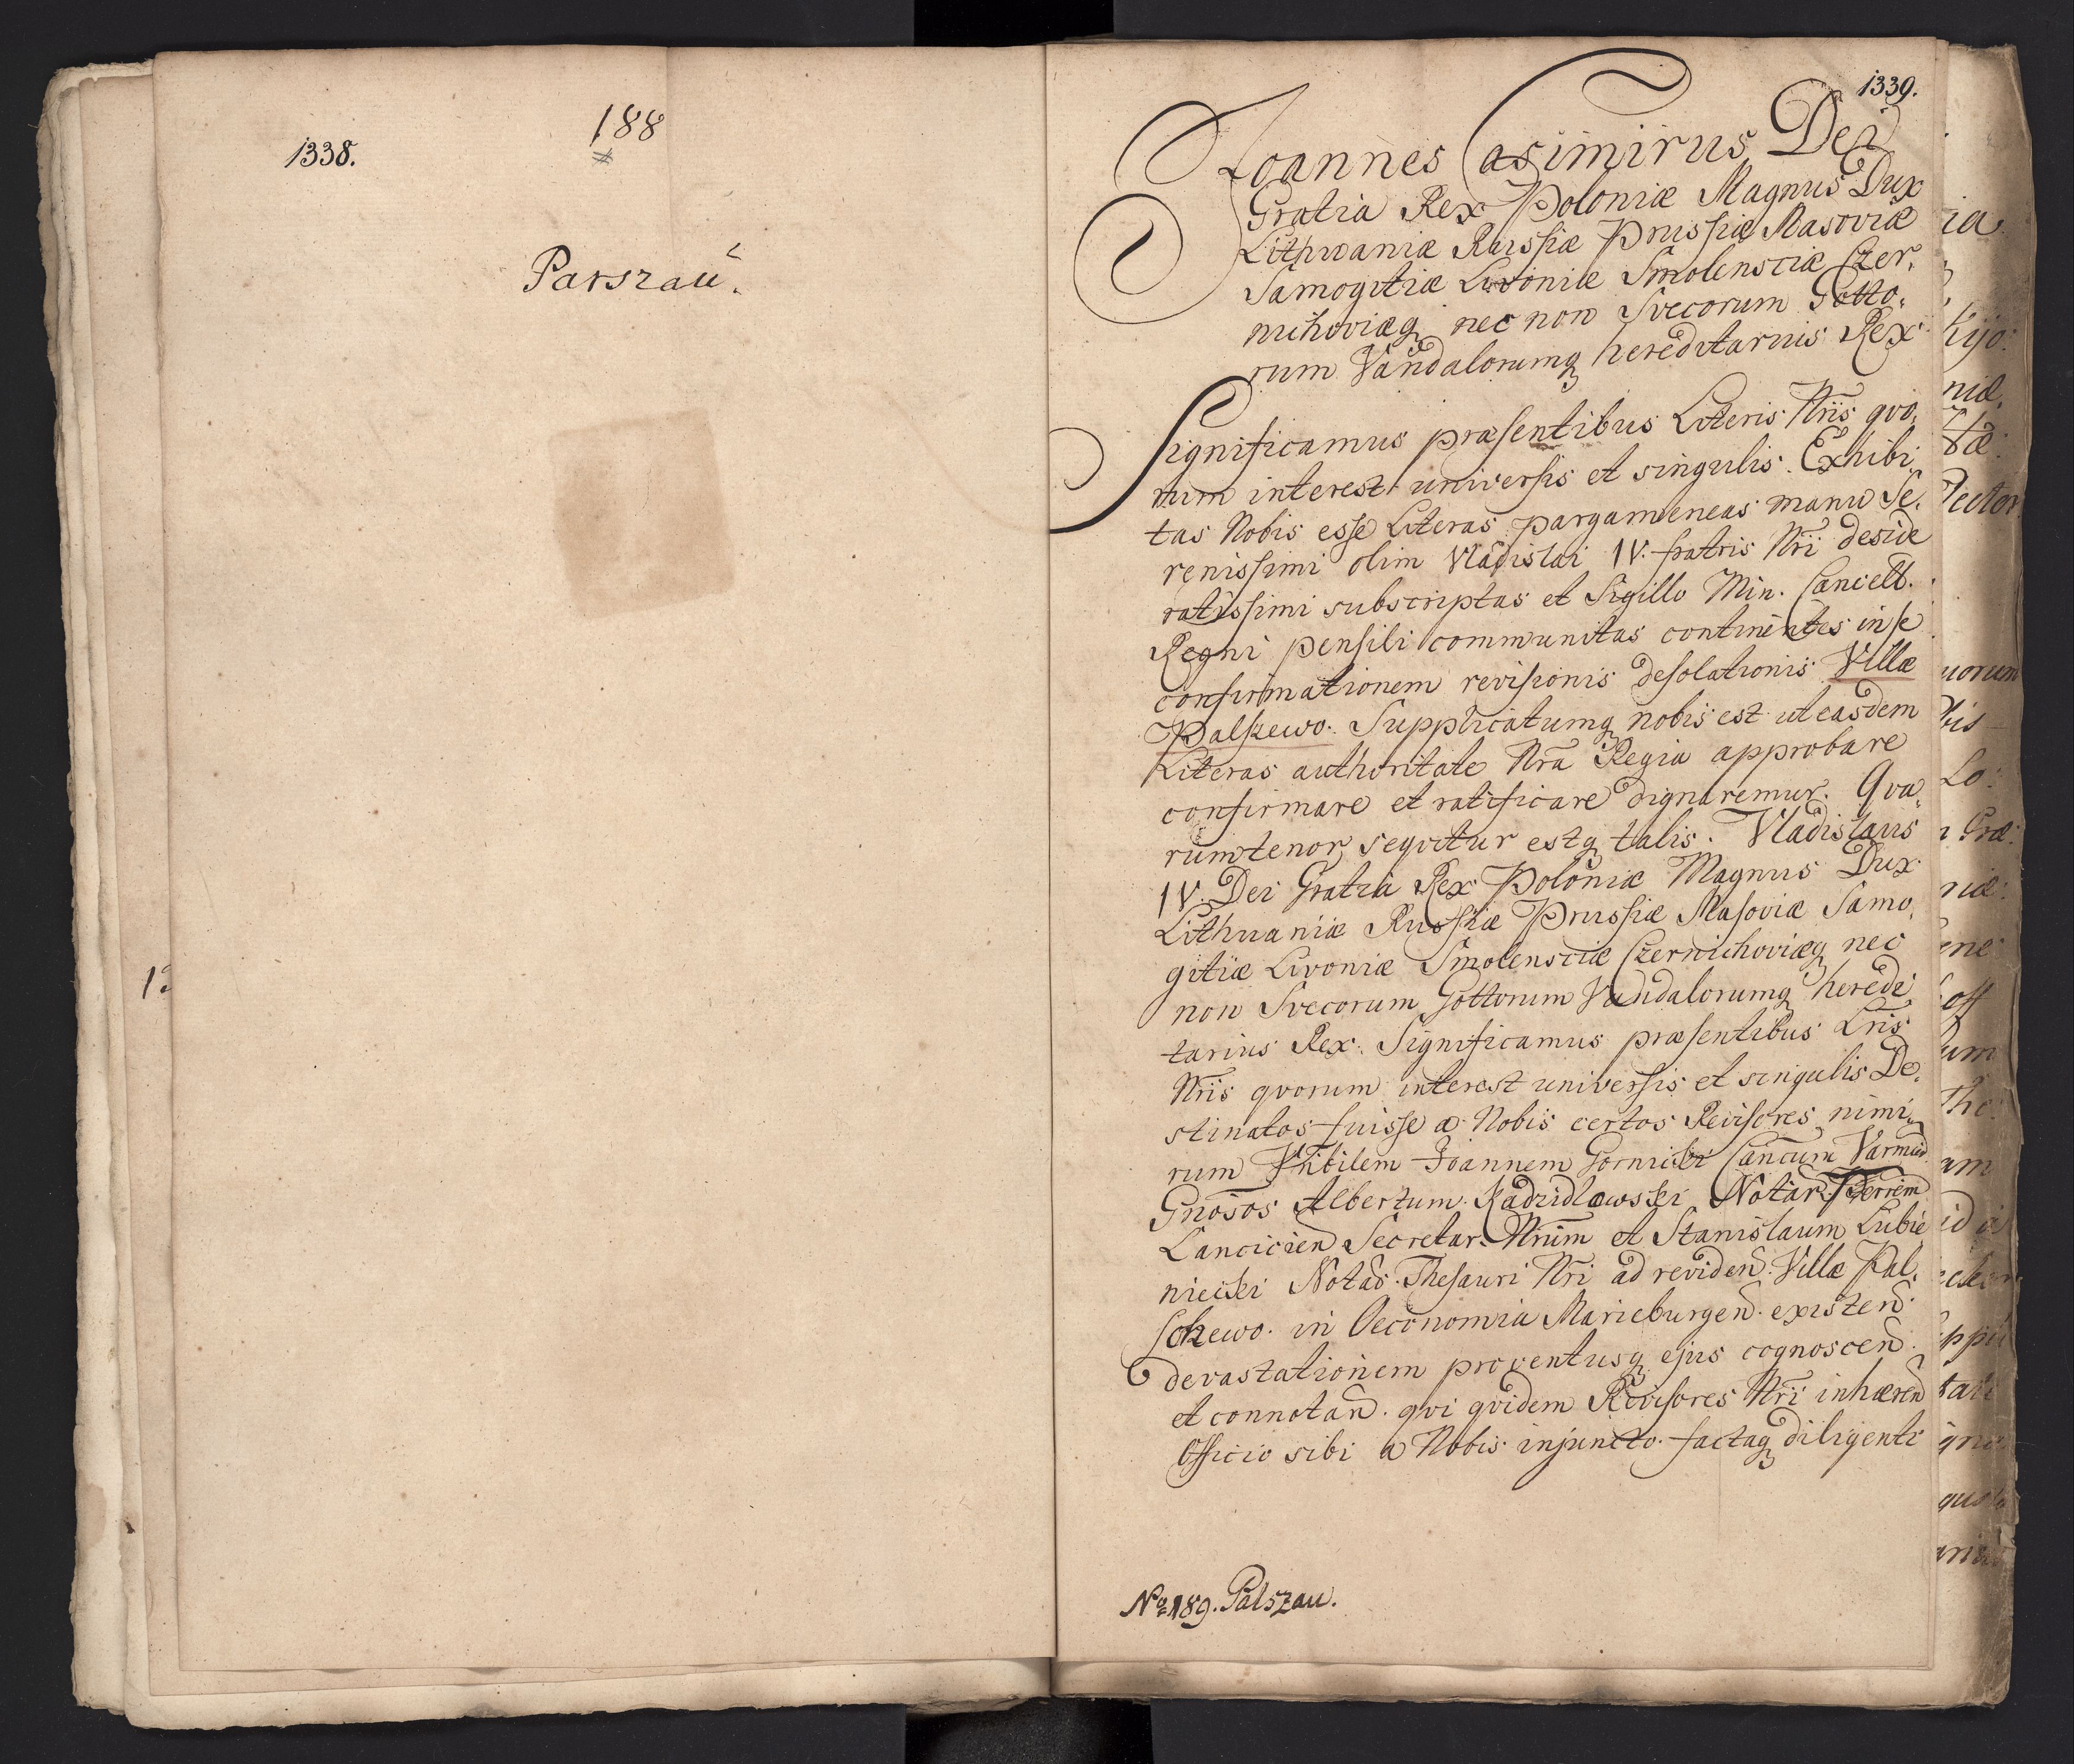 1338.
188
Parszau.
1339.
Joannes Casimirus Dei
Gratia Rex Poloniæ Magnus Dux
Lithvaniæ Russiæ Prussiæ Masoviæ
Samogitiæ Livoniæ Smolensciæ Czer,
nihoviæq nec non Svecorum Gotto,
rum Vandalorumq hereditarius Rex
Significamus præsentibus Literis Nrïs qvo,
rum interest universis et singulis. Exhibi,
tas Nobis esse Literas pargameneas manu Se,
renissimi olim Vladislai IV. fratris Nrï deside
ratissimi subscriptas et Sigillo Min. Cancell.
Regni pensili communitas continentes in se
confirmationem revisionis desolationis Villæ
Palszewo. Supplicatumq nobis est ut easdem
Literas authoritate Nra Regia approbare
confirmare et ratificare dignaremur. Qva,
rum tenor seqvitur estq talis. Vladislaus
IV. Dei Gratia Rex Poloniæ Magnus Dux
Lithuaniæ Russiæ Prussiæ Masoviæ Samo,
gitiæ Livoniæ Smolensciæ Czernichoviæq nec
non Svecorum Gottorum Vandalorumq heredi
tarius Rex. Significamus præsentibus Lris
Nrïs qvorum interest universis et singulis De,
stinatos fuisse a Nobis certos Revisores nimi,
rum Joannem Gornicki Cancum Varmid.
Gnosos Albertum Kadzidlowski Notar. Terrem
Lancicien Secretar. Nrum et Stanislaum Lubie
niecki Notar. Thesauri Nrï ad reviden. Villæ Pal,
schewo. in Oeconomia Marieburgen. existen.
devastationem proventusq ejus cognoscen.
et connotan. qvi qvidem Revisores Nrï inhæren
Officio sibi a Nobis injuncto. factaq diligenti
No 189. Palszau.